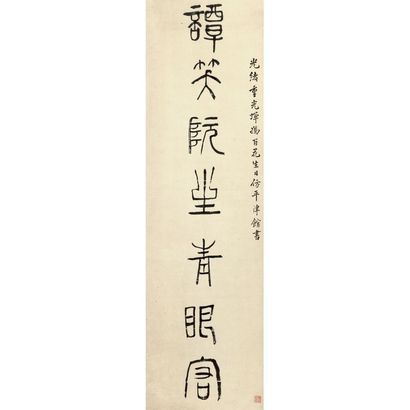 譚笑阮坐青眼客
光緒重光百花生日仿平津館書